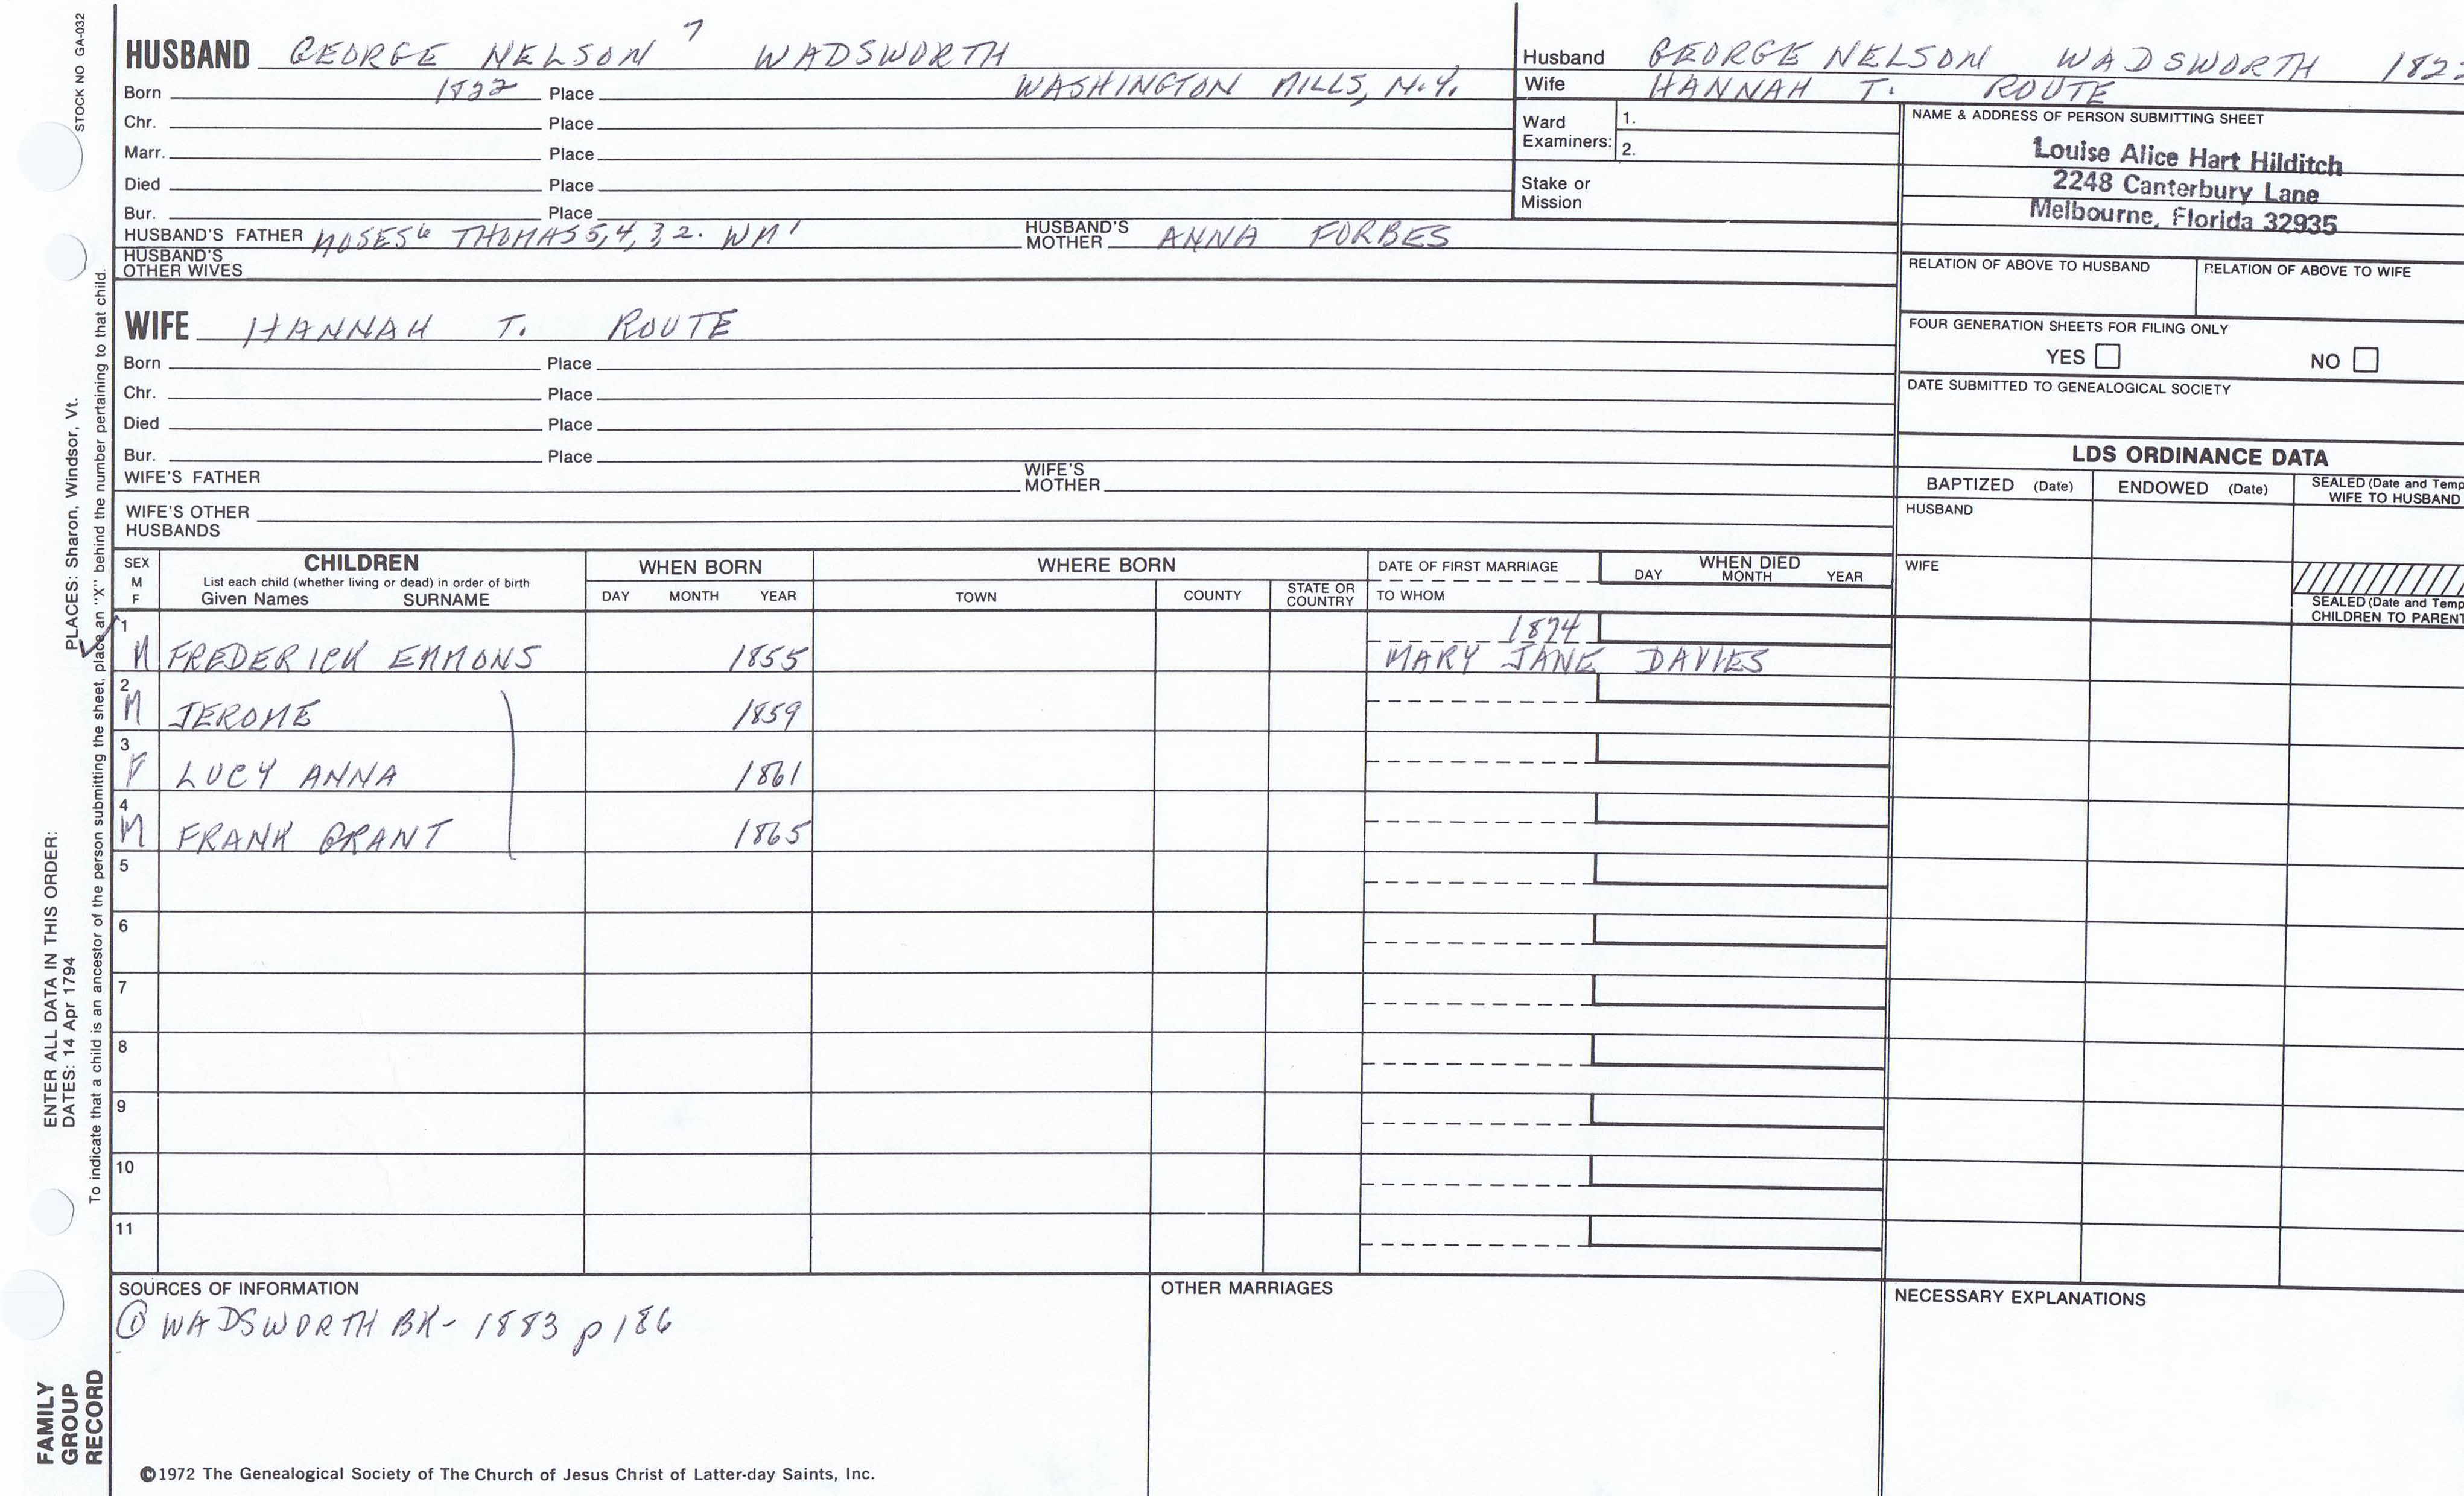 STOCK NO GA-032
HUSBAND GEORGE NELSON 7 WADSWORTH
Born 1822 Place WASHINGTON MILLS, N.Y.
Chr. Place
Marr. Place
Died Place
Bur. Place
HUSBAND'S FATHER MOSES6 THOMAS 5,4,3,2. WM 1 HUSBAND'S MOTHER ANNA FORBES
HUSBAND'S OTHER WIVES
Husband GEORGE NELSON WADSWORTH 182
Wife HANNAH T. ROUTE
Ward Examiners: 1.
2.
Stake or Mission
NAME & ADDRESS OF PERSON SUBMITTING SHEET
Louise Alice Hart Hilditch
2248 Canterbury Lane
Melbourne, Florida 32935
RELATION OF ABOVE TO HUSBAND RELATION OF ABOVE TO WIFE
FOUR GENERATION SHEETS FOR FILING ONLY
YES NO
DATE SUBMITTED TO GENEALOGICAL SOCIETY
WIFE HANNAH T. ROUTE
Born Place
Chr. Place
Died Place
Bur. Place
WIFE'S FATHER WIFE'S MOTHER
WIFE'S OTHER HUSBANDS
LDS ORDINANCE DATA
BAPTIZED (Date) ENDOWED (Date) SEALED (Date and Temp
WIFE TO HUSBAND
HUSBAND
WIFE
SEALED (Date and Temp
CHILDREN TO PARENT
SEX M F
CHILDREN
List each child (whether living or dead) in order of birth
Given Names SURNAME
WHEN BORN
DAY MONTH YEAR
WHERE BORN
TOWN COUNTY STATE OR COUNTRY
DATE OF FIRST MARRIAGE
TO WHOM
WHEN DIED
DAY MONTH YEAR
1 M FREDERICK EMMONS 1855 1874
MARY JANE DAVIES
2 M JEROME 1859
3 F LUCY ANNA 1861
4 M FRANK GRANT 1865
5
6
7
8
9
10
11
SOURCES OF INFORMATION
① WADSWORTH BK- 1883 p 186
OTHER MARRIAGES
NECESSARY EXPLANATIONS
©1972 The Genealogical Society of The Church of Jesus Christ of Latter-day Saints, Inc.
FAMILY
GROUP
RECORD
ENTER ALL DATA IN THIS ORDER:
DATES: 14 Apr 1794 PLACES: Sharon, Windsor, Vt.
To indicate that a child is an ancestor of the person submitting the sheet, place an "X" behind the number pertaining to that child.